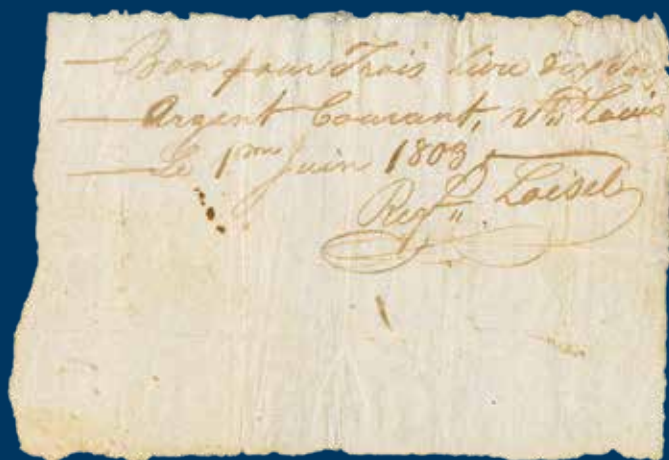 Bon pour Trois livre dix sols
Argent Courant, St Louis
Le 1me Juin 1803
Regis Loisel